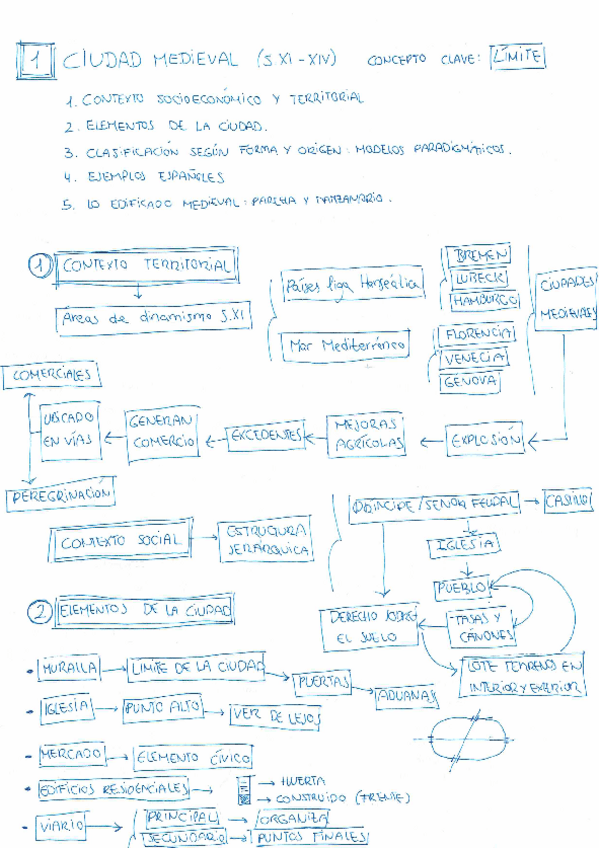 1 CIUDAD MEDIEVAL (S.XI-XIV) CONCEPTO CLAVE: LÍMITE
1. CONTEXTO SOCIOECONÓMICO Y TERRITORIAL
2. ELEMENTOS DE LA CIUDAD.
3. CLASIFICACIÓN SEGÚN FORMA Y ORIGEN: MODELOS PARADIGMÁTICOS.
4. EJEMPLOS ESPAÑOLES
5. LO EDIFICADO MEDIEVAL: PARCELA Y
1 CONTEXTO TERRITORIAL
Áreas de dinamismo S.XI
Países liga Hanseática
BREMEN
LUBECK
HAMBURGO
Mar Mediterráneo
FLORENCIA
VENECIA
GENOVA
CIUDADES
MEDIEVALES
EXPLOSIÓN
MEJORAS
AGRÍCOLAS
EXCEDENTES
GENERAN
COMERCIO
UBICADO
EN VÍAS
COMERCIALES
PEREGRINACIÓN
CONTEXTO SOCIAL
ESTRUCTURA
JERÁRQUICA
PRINCIPE/SEÑOR FEUDAL
CASTILLO
IGLESIA
PUEBLO
TASAS Y
CANONES
DERECHO SOBRE
EL SUELO
LOTE TERRENO EN
INTERIOR Y EXTERIOR
2 ELEMENTOS DE LA CIUDAD
- MURALLA LIMITE DE LA CIUDAD PUERTAS ADUANAS
- IGLESIA PUNTO ALTO VER DE LEJOS
- MERCADO ELEMENTO CÍVICO
- EDIFICIOS RESIDENCIALES HUERTA
CONSTRUIDO (FRENTE)
- VIARIO PRINCIPAL ORGANIZA
SECUNDARIO PUNTOS FINALES